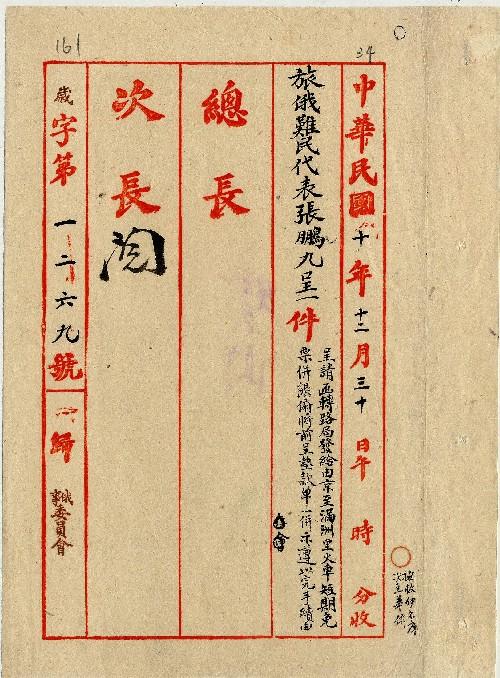 161
34
中華民國十年十二月三十日午 時 分收
旅俄難民代表張鵬九呈一件
呈請函轉路局發給由京至滿洲里火車短期免
票併懇俯將前呈墊款單一併示遵以完手續由
總長
次長 閱
歲字第一二六九號
俄事委員會